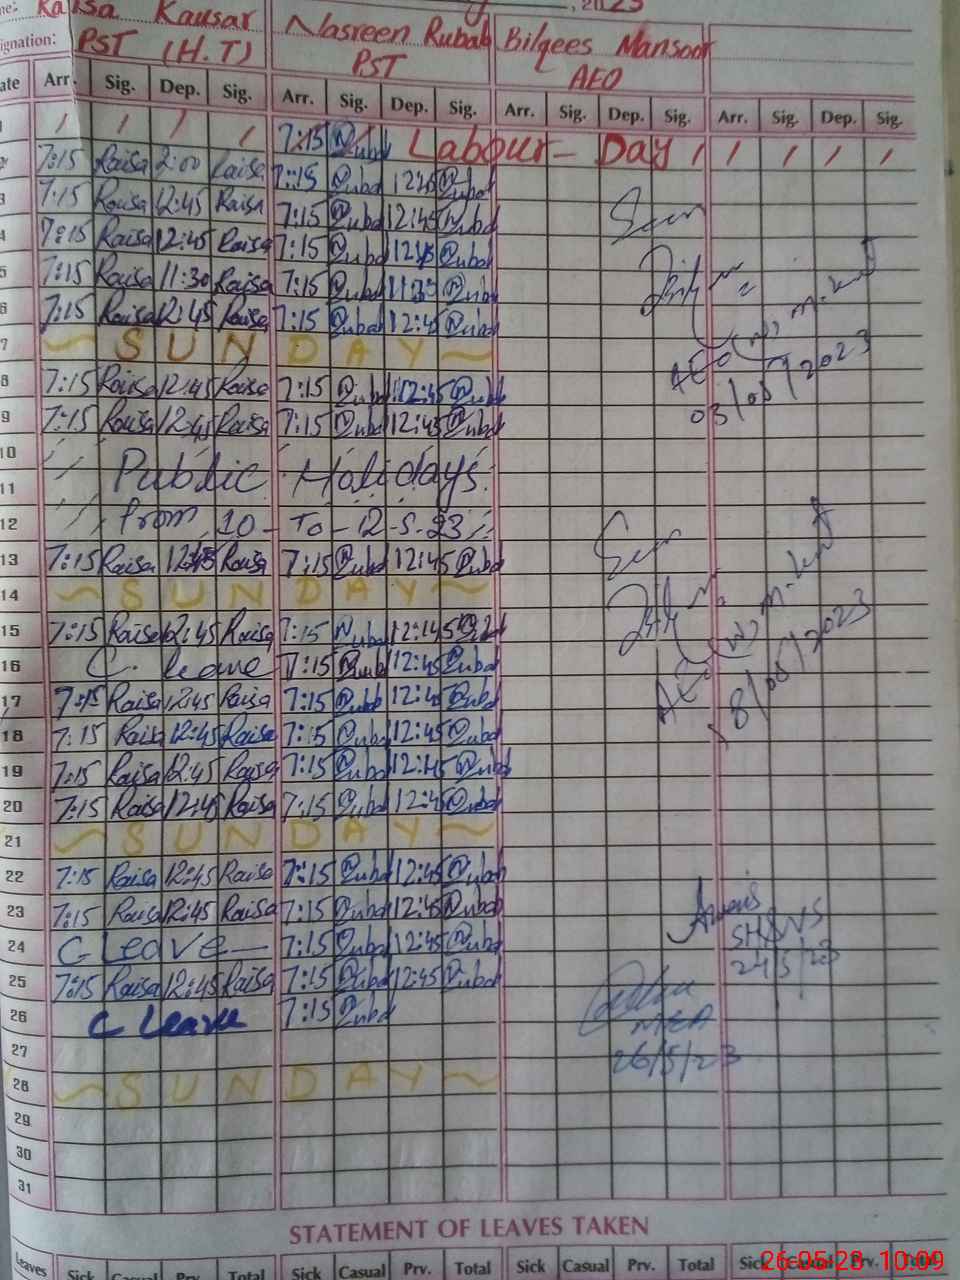 me: Raisa Kausar Nasreen Rubab Bilqees Mansoor , 2023
signation: PST (H.T) PST AEO
ate Arr. Sig. Dep. Sig. Arr. Sig. Dep. Sig. Arr. Sig. Dep. Sig. Arr. Sig. Dep. Sig.
1 / / / / 7:15 Rubab Labour - Day / / / / / /
2 7:15 Raisa 2:00 Raisa 7:15 Rubab Rubab
3 7:15 Raisa 12:45 Raisa 7:15 Rubab 12:45 Rubab
4 7:15 Raisa 12:45 Raisa 7:15 Rubab 12:45 Rubab
5 7:15 Raisa 11:30 Raisa 7:15 Rubab Rubab
6 7:15 Raisa 12:45 Raisa 7:15 Rubab 12:45 Rubab
7 ~ S U N D A Y ~
8 7:15 Raisa 12:45 Raisa 7:15 Rubab 12:45 Rubab
9 7:15 Raisa 12:45 Raisa 7:15 Rubab 12:45 Rubab
10
11 Public Holidays
12 from 10 - To - 12-5-23
13 7:15 Raisa 12:45 Raisa 7:15 Rubab 12:45 Rubab
14 ~ S U N D A Y ~
15 7:15 Raisa 12:45 Raisa 7:15 Rubab 12:45 Rubab
16 C. leave 7:15 Rubab 12:45 Rubab
17 7:15 Raisa 12:45 Raisa 7:15 Rubab 12:45 Rubab
18 7:15 Raisa 12:45 Raisa 7:15 Rubab 12:45 Rubab
19 7:15 Raisa 12:45 Raisa 7:15 Rubab 12:45 Rubab
20 7:15 Raisa 12:45 Raisa 7:15 Rubab 12:45 Rubab
21 ~ S U N D A Y ~
22 7:15 Raisa 12:45 Raisa 7:15 Rubab 12:45 Rubab
23 7:15 Raisa 12:45 Raisa 7:15 Rubab 12:45 Rubab
24 C Leave 7:15 Rubab 12:45 Rubab
25 7:15 Raisa 12:45 Raisa 7:15 Rubab 12:45 Rubab
26 C Leave 7:15 Rubab
27
28 ~ S U N D A Y ~
29
30
31
Seen
AEO (W) M.
03/05/2023
Seen
AEO (W) M.
18/05/2023
SH&NS
24/5/23
MEA
26/5/23
STATEMENT OF LEAVES TAKEN
Leaves Sick Casual Prv. Total Sick Casual Prv. Total Sick Casual Prv. Total Sick Casual Prv. Total
26-05-23 10:09